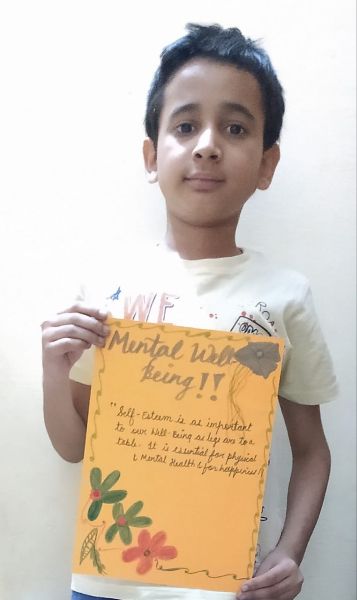 WE
ROA
Mental Well
Being!!
"Self-Esteem is as important
to our Well-Being as legs are to a
table. It is essential for physical
& Mental Health & for happiness."